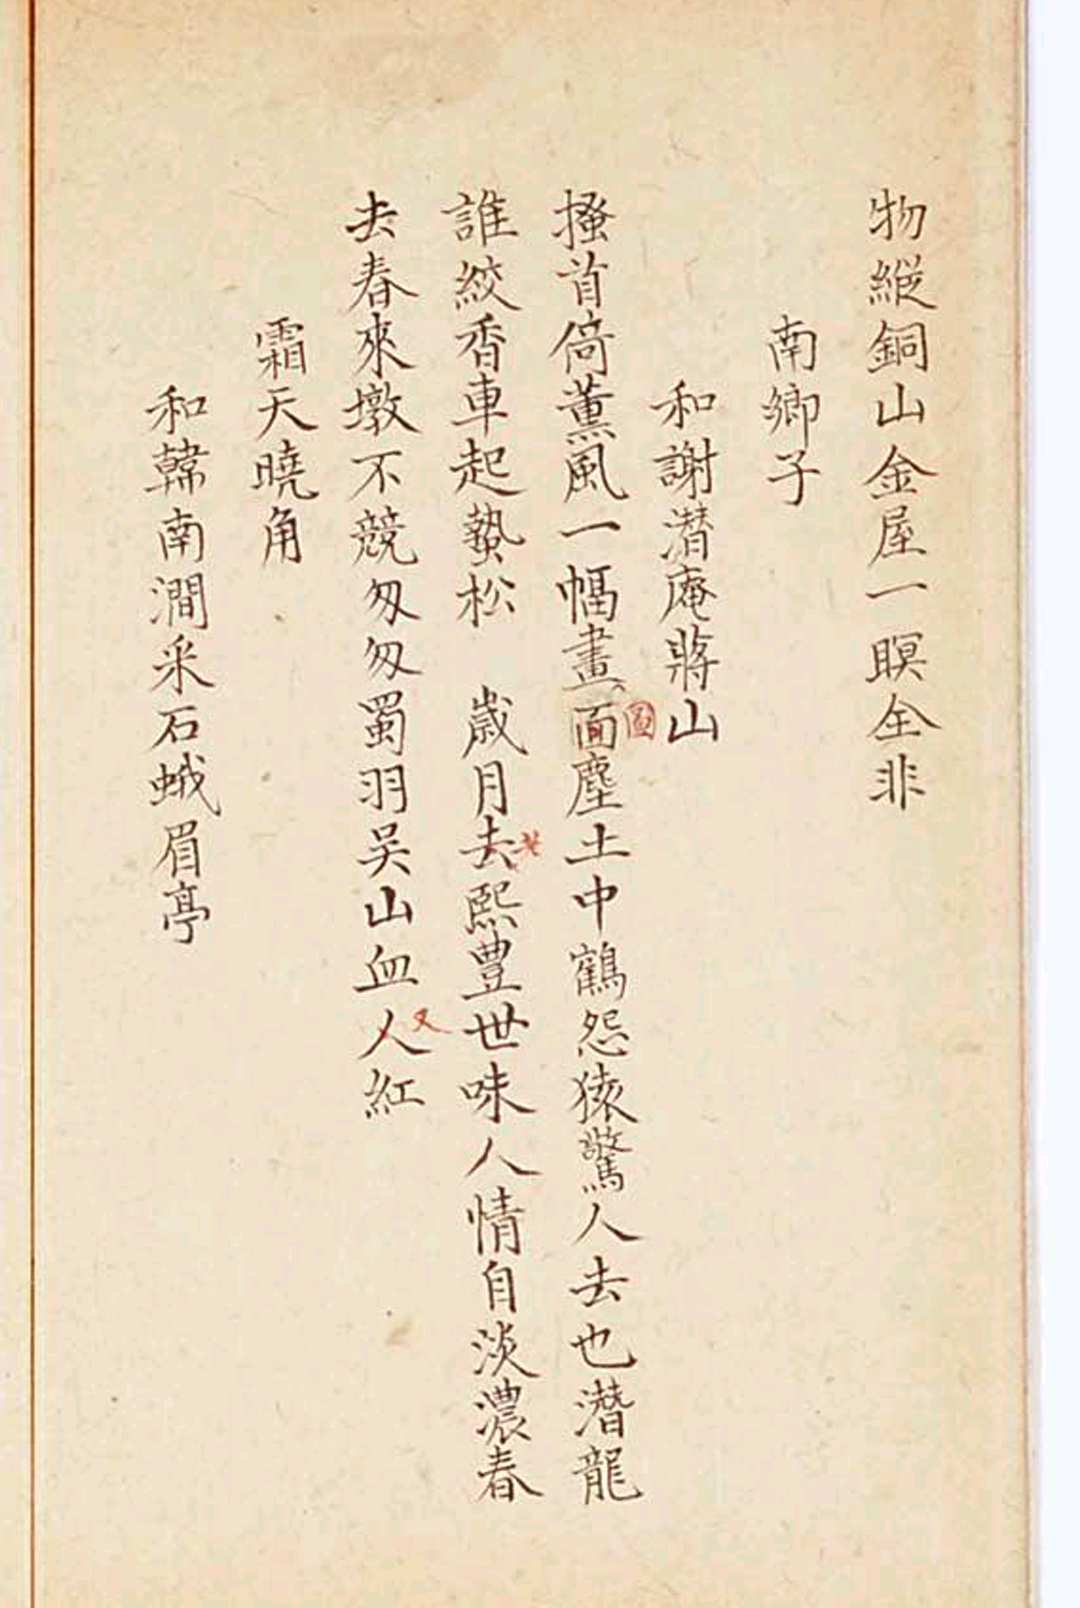 物縱銅山金屋一瞑全非
南鄉子
和謝潛庵蔣山
搔首倚薰風一幅畫面塵土中鶴怨猿驚人去也潛龍
圖
誰絞香車起蟄松　歲月去熙豐世味人情自淡濃春
去春來墩不競匆匆蜀羽吴山血人紅
又
霜天曉角
和韓南澗采石蛾眉亭